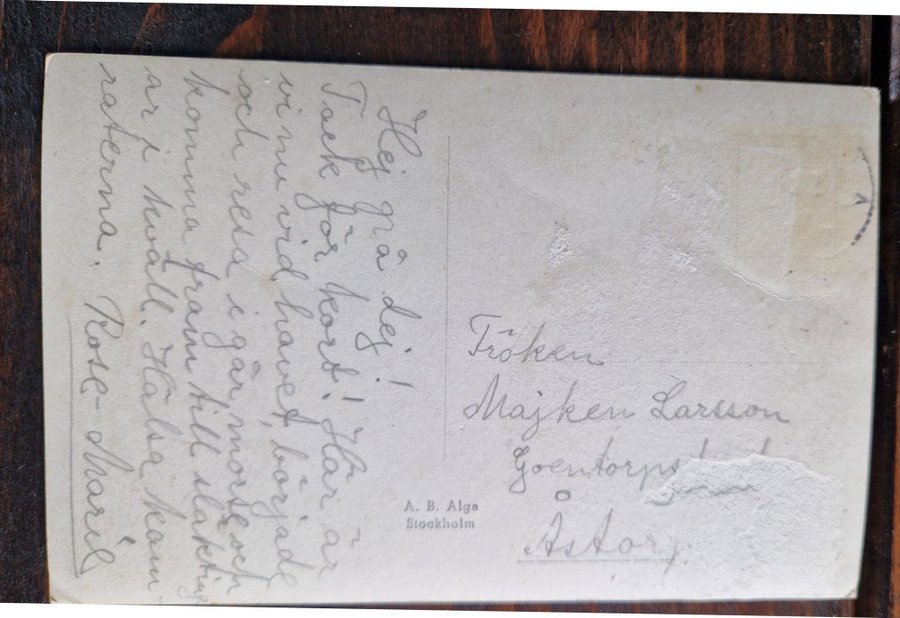 Hej på dej!
Tack för kort! Här är
vi nu vid havet, började
och resa i går morse och
komma fram till släkting
ar i kväll. Hälsa kam-
raterna. Rose-Marie
Fröken
Majken Larsson
Åstorp
A. B. Alga
Stockholm